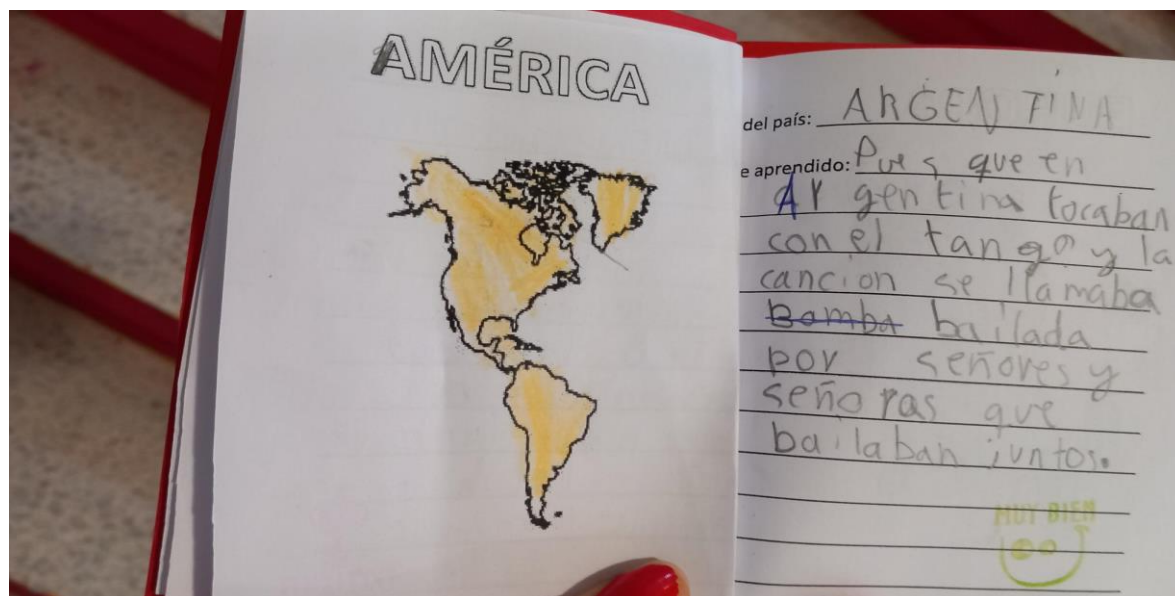 AMÉRICA
del país: ARGENTINA
e aprendido: Pues que en
Argentina tocaban
con el tango y la
canción se llamaba
bamba bailada
por señores y
señoras que
bailaban juntos.
MUY BIEN